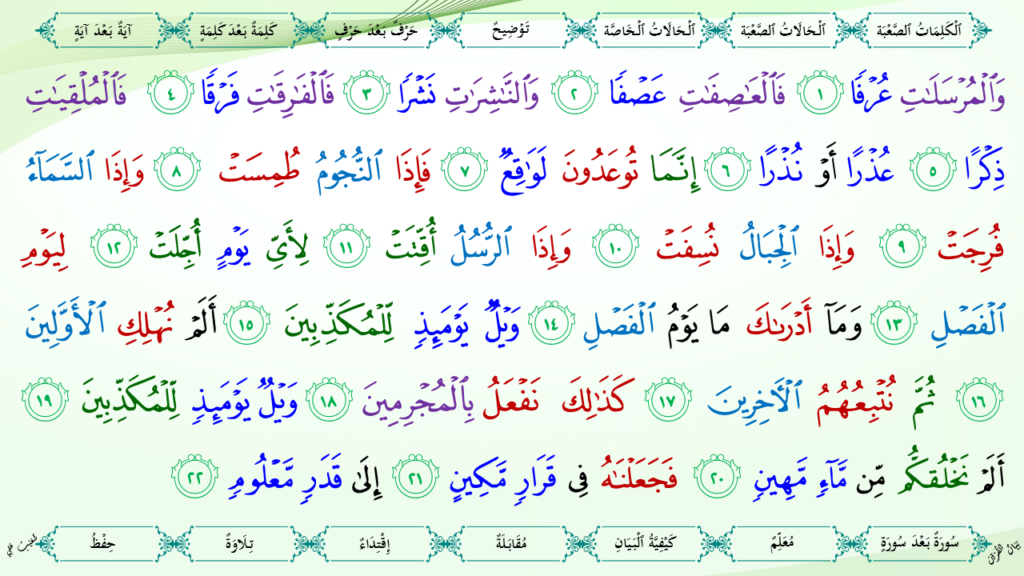 اَلْكَلِمَاتُ الصَّعْبَة اَلْحَالَاتُ الصَّعْبَة اَلْحَالَاتُ الْخَاصَّة تَوْضِيحٌ حَرْفٌ بَعْدَ حَرْفٍ كَلِمَةٌ بَعْدَ كَلِمَةٍ آيَةٌ بَعْدَ آيَةٍ
وَٱلْمُرْسَلَـٰتِ عُرْفًا ١ فَٱلْعَـٰصِفَـٰتِ عَصْفًا ٢ وَٱلنَّـٰشِرَٰتِ نَشْرًا ٣ فَٱلْفَـٰرِقَـٰتِ فَرْقًا ٤ فَٱلْمُلْقِيَـٰتِ
ذِكْرًا ٥ عُذْرًا أَوْ نُذْرًا ٦ إِنَّمَا تُوعَدُونَ لَوَٰقِعٌ ٧ فَإِذَا ٱلنُّجُومُ طُمِسَتْ ٨ وَإِذَا ٱلسَّمَآءُ
فُرِجَتْ ٩ وَإِذَا ٱلْجِبَالُ نُسِفَتْ ١٠ وَإِذَا ٱلرُّسُلُ أُقِّتَتْ ١١ لِأَىِّ يَوْمٍ أُجِّلَتْ ١٢ لِيَوْمِ
ٱلْفَصْلِ ١٣ وَمَآ أَدْرَىٰكَ مَا يَوْمُ ٱلْفَصْلِ ١٤ وَيْلٌ يَوْمَئِذٍ لِّلْمُكَذِّبِينَ ١٥ أَلَمْ نُهْلِكِ ٱلْأَوَّلِينَ
١٦ ثُمَّ نُتْبِعُهُمُ ٱلْأَخِرِينَ ١٧ كَذَٰلِكَ نَفْعَلُ بِٱلْمُجْرِمِينَ ١٨ وَيْلٌ يَوْمَئِذٍ لِّلْمُكَذِّبِينَ ١٩
أَلَمْ نَخْلُقكُّم مِّن مَّآءٍ مَّهِينٍ ٢٠ فَجَعَلْنَـٰهُ فِى قَرَارٍ مَّكِينٍ ٢١ إِلَىٰ قَدَرٍ مَّعْلُومٍ ٢٢
سُورَةٌ بَعْدَ سُورَةٍ مُعَلِّمٌ كَيْفِيَّةُ الْبَيَانِ مُقَابَلَةٌ إِقْتِدَاءٌ تِلَاوَةٌ حِفْظٌ
بَيَانُ الْقُرْآنِ